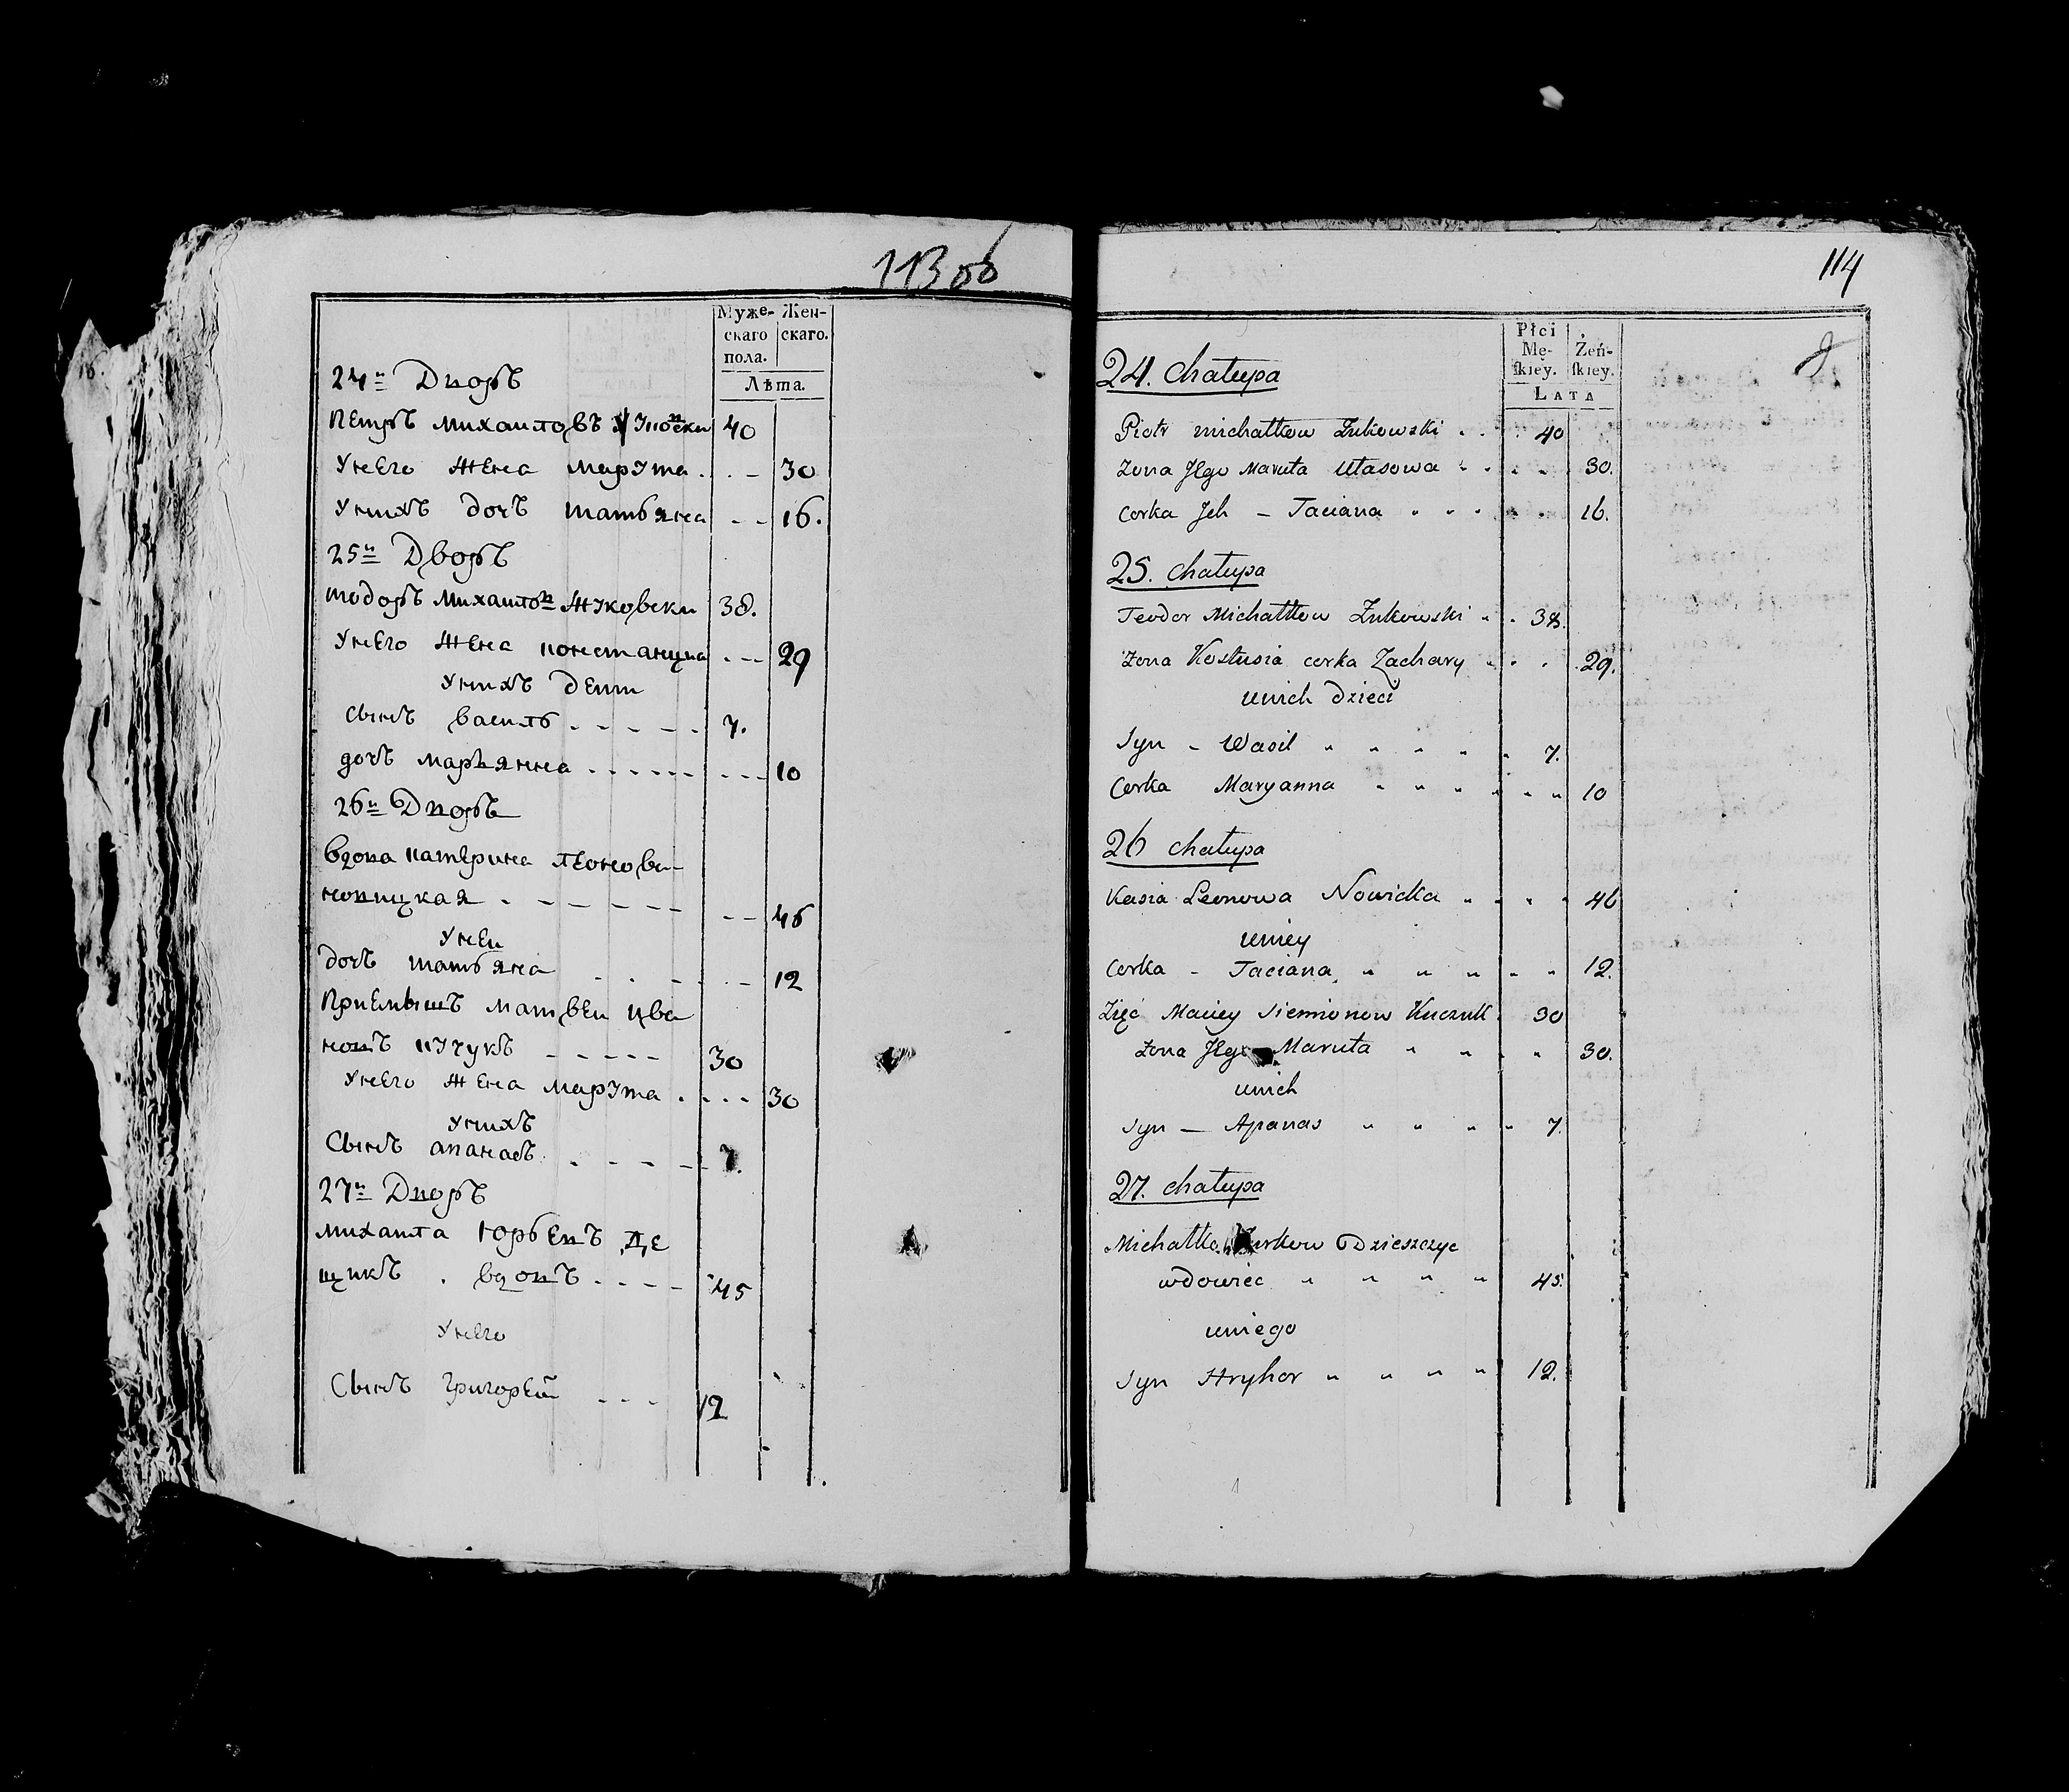 113 об
Муже- Жен-
скаго скаго.
пола.
Лѣта.
24й Дворъ
Петръ михайловъ Жуковски 40
Унего жена марута . . – 30
Унихъ дочъ татьяна – – 16.
25й Дворъ
тодоръ михайлов Жуковски 38.
Унего жена констанциа . – – 29
Унихъ дети
Сынъ василь . – – – – . 7.
дочъ марьянна . . . . . . – – – 10
26й Дворъ
вдова катерина леонова
новицкая . – – – – – – – 46
Уней
дочъ татьяна . . – – . – 12
Приемышъ матвеи
кучукъ – – – – – 30
Унего жена марута . . – – 30
Унихъ
Сынъ апанасъ . – – – – 7.
27й Дворъ
михаила юрьевъ де
щикъ . вдовъ . – – – 45
Унего
Сынъ григорей – – – 12
114
Płci
Mę- Żeń-
skiey. skiey.
Lata
24. Chałupa
Piotr Michałkow Żukowski . . . 40
Żona Jego Maruta Ułasowa . . . . 30.
Corka Jch – Taciana " " " " " 16.
25. Chałupa
Teodor Michałkow Żukowski " . 38.
Żona Kostusia corka Zachary . . . 29.
unich dzieci
Syn – Wasil " " " " " . 7.
Corka Maryanna " " " " " " 10
26 Chałupa
Kasia Leonowa Nowicka " " " " 46
uniey
Corka – Taciana " " " " " 12.
Zięć Maciey Siemionow Kuczuk . 30
Żona Jego Maruta " " " " 30.
unich
Syn — Apanas " " " " 7.
27. Chałupa
Michałko Jurkow Dzieszczyc
wdowiec " " " " " 45.
uniego
Syn Hryhor " " " " 12.